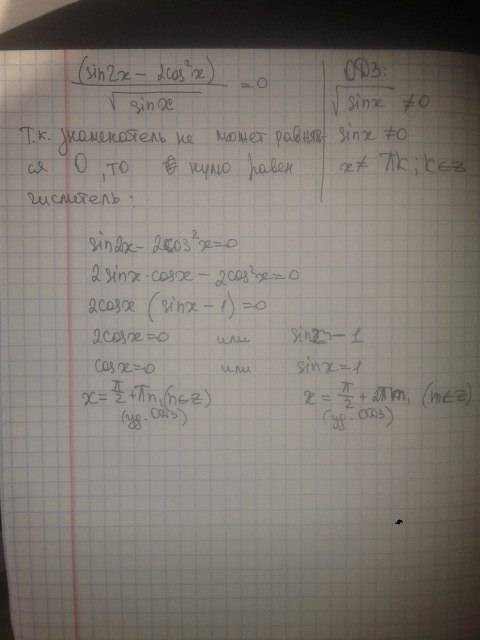 (sin2x - 2cos²x) / √sinx = 0
ОДЗ:
√sinx ≠ 0
sinx ≠ 0
x ≠ πk; k∈z
Т.к. знаменатель не может равнять-
ся 0, то нулю равен
числитель:
sin2x - 2cos²x=0
2sinx·cosx - 2cos²x=0
2cosx (sinx - 1)=0
2cosx=0 или sinx - 1
cosx=0 или sinx=1
x = π/2 + πn, (n∈z) x = π/2 + 2πm, (m∈z)
(уд. ОДЗ) (уд. ОДЗ)